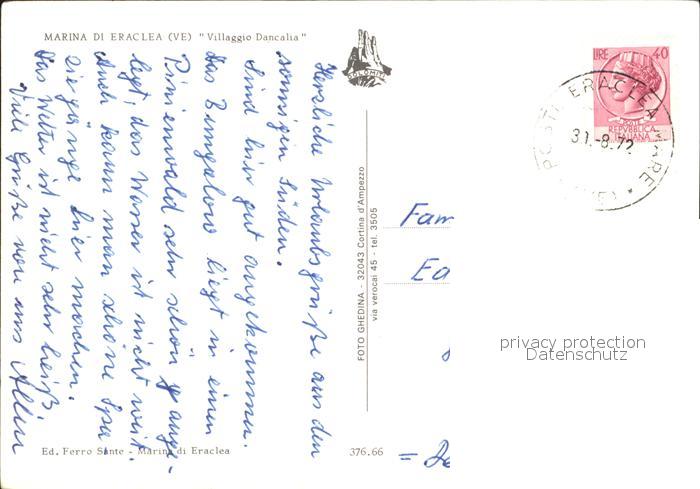 MARINA DI ERACLEA (VE) "Villaggio Dancalia"
DOLOMITI
LIRE 40
POSTE
REPVBBLICA
ITALIANA
POSTE ERACLEA MARE * (VE)
31.-8.72
Herzliche Urlaubsgrüße aus den
sonnigin Süden.
Sind hier gut angekommen.
Das Bungalow liegt in einen
Pinienwald sehr schön gange-
legt, das Wasser ist nicht weit.
Auch kann man schöne Spa-
ziergänge hier machen.
Das Wetter ist nicht sehr heiß.
Viele Grüße von uns Allen
FOTO GHEDINA - 32043 Cortina d'Ampezzo
via verocai 45 - tel. 3505
Fam
Ea
privacy protection
Datenschutz
Ed. Ferro Sante - Marina di Eraclea
376.66